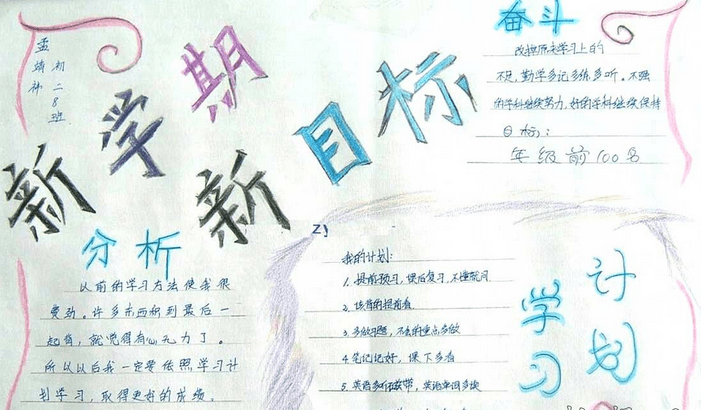 孟
婧
神
初
二
8
班
新学期
新目标
奋斗
改掉原来学习上的
不足,勤学多记多练多听。不强
的学科继续努力,好的学科继续保持
目标:
年级前100名
分析
以前的学习方法使我很
受劲。许多东西积到最后一
起背,就觉得有心无力了。
所以以后我一定要依照学习计
划学习,取得更好的成绩。
我的计划:
1. 提前预习,课后复习,不懂就问
2. 该背的提前背
3. 多做习题,不会的重点多做
4. 笔记记好,课下多看
5. 英语多听磁带,英语单词多读
学习
计划